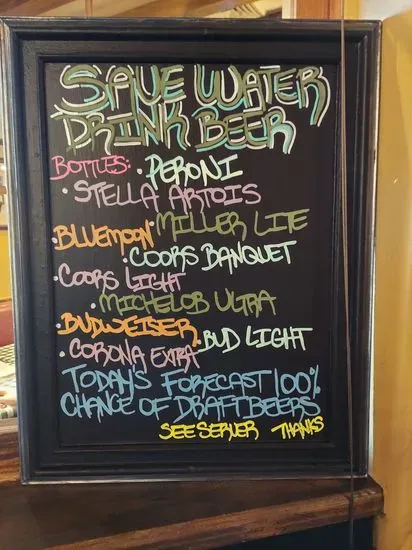 SAVE WATER
DRINK BEER
BOTTLES: • PERONI
• STELLA ARTOIS
• BLUEMOON • MILLER LITE
• COORS BANQUET
• COORS LIGHT
• MICHELOB ULTRA
• BUDWEISER • BUD LIGHT
• CORONA EXTRA
TODAY'S FORECAST 100%
CHANGE OF DRAFTBEERS
SEE SERVER THANKS